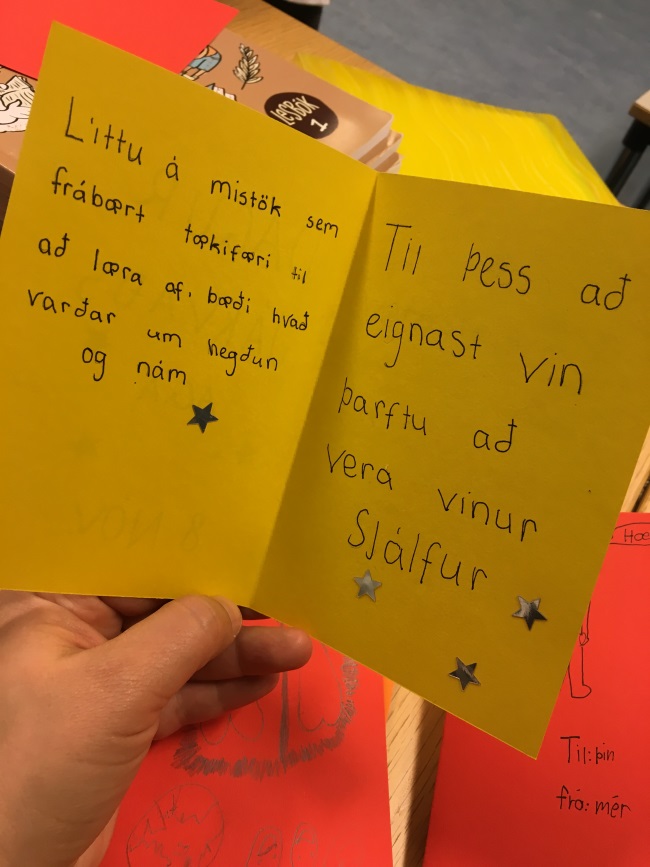 LESBÓK
1
Líttu á mistök sem
frábært tækifæri til
að læra af, bæði hvað
varðar um hegðun
og nám
Til þess að
eignast vin
þarftu að
vera vinur
Sjálfur
Til: þin
frá: mér